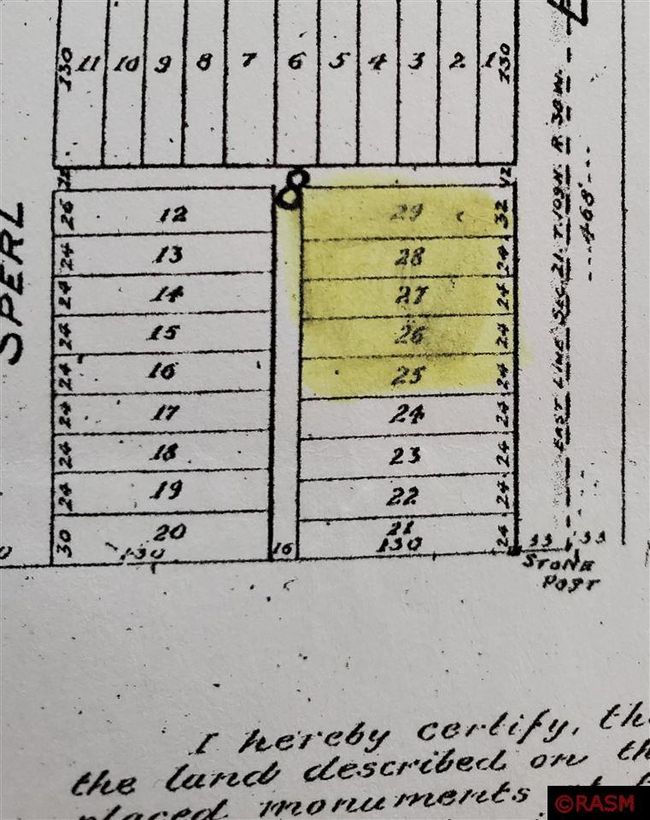 130 11 10 9 8 7 6 5 4 3 2 1 130
12 8 12
26 12 29 32
24 13 28 24
24 14 27 24
24 15 26 24
24 16 25 24
24 17 24 24
24 18 23 24
24 19 22 24
30 20 21 24
130 16 130 33 33
STONE
POST
SPERL
EAST LINE SEC. 21. T. 109 N. R. 30 W.
468'
I hereby certify, tha
the land described on th
placed monuments
©RASM